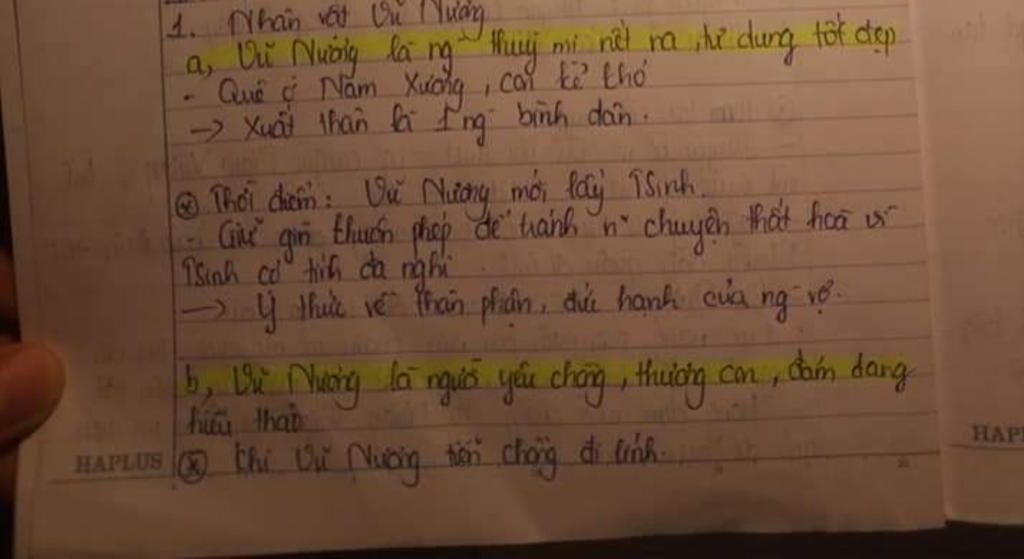 1. Nhân vật Vũ Nương
a, Vũ Nương là ng` thuỳ mị nết na, tư dung tốt đẹp
- Quê ở Nam Xương, con kẻ khó
-> Xuất thân là 1 ng` bình dân.
⊛ Thời điểm: Vũ Nương mới lấy TSinh.
- Giữ gìn khuôn phép để tránh n~ chuyện thất hoà vì
TSinh có tính đa nghi
-> Ý thức về thân phận, đức hạnh của ng` vợ.
b, Vũ Nương là người yêu chồng, thương con, đảm đang
hiếu thảo
HAPLUS ⊛ Khi Vũ Nương tiễn chồng đi lính.
HAP